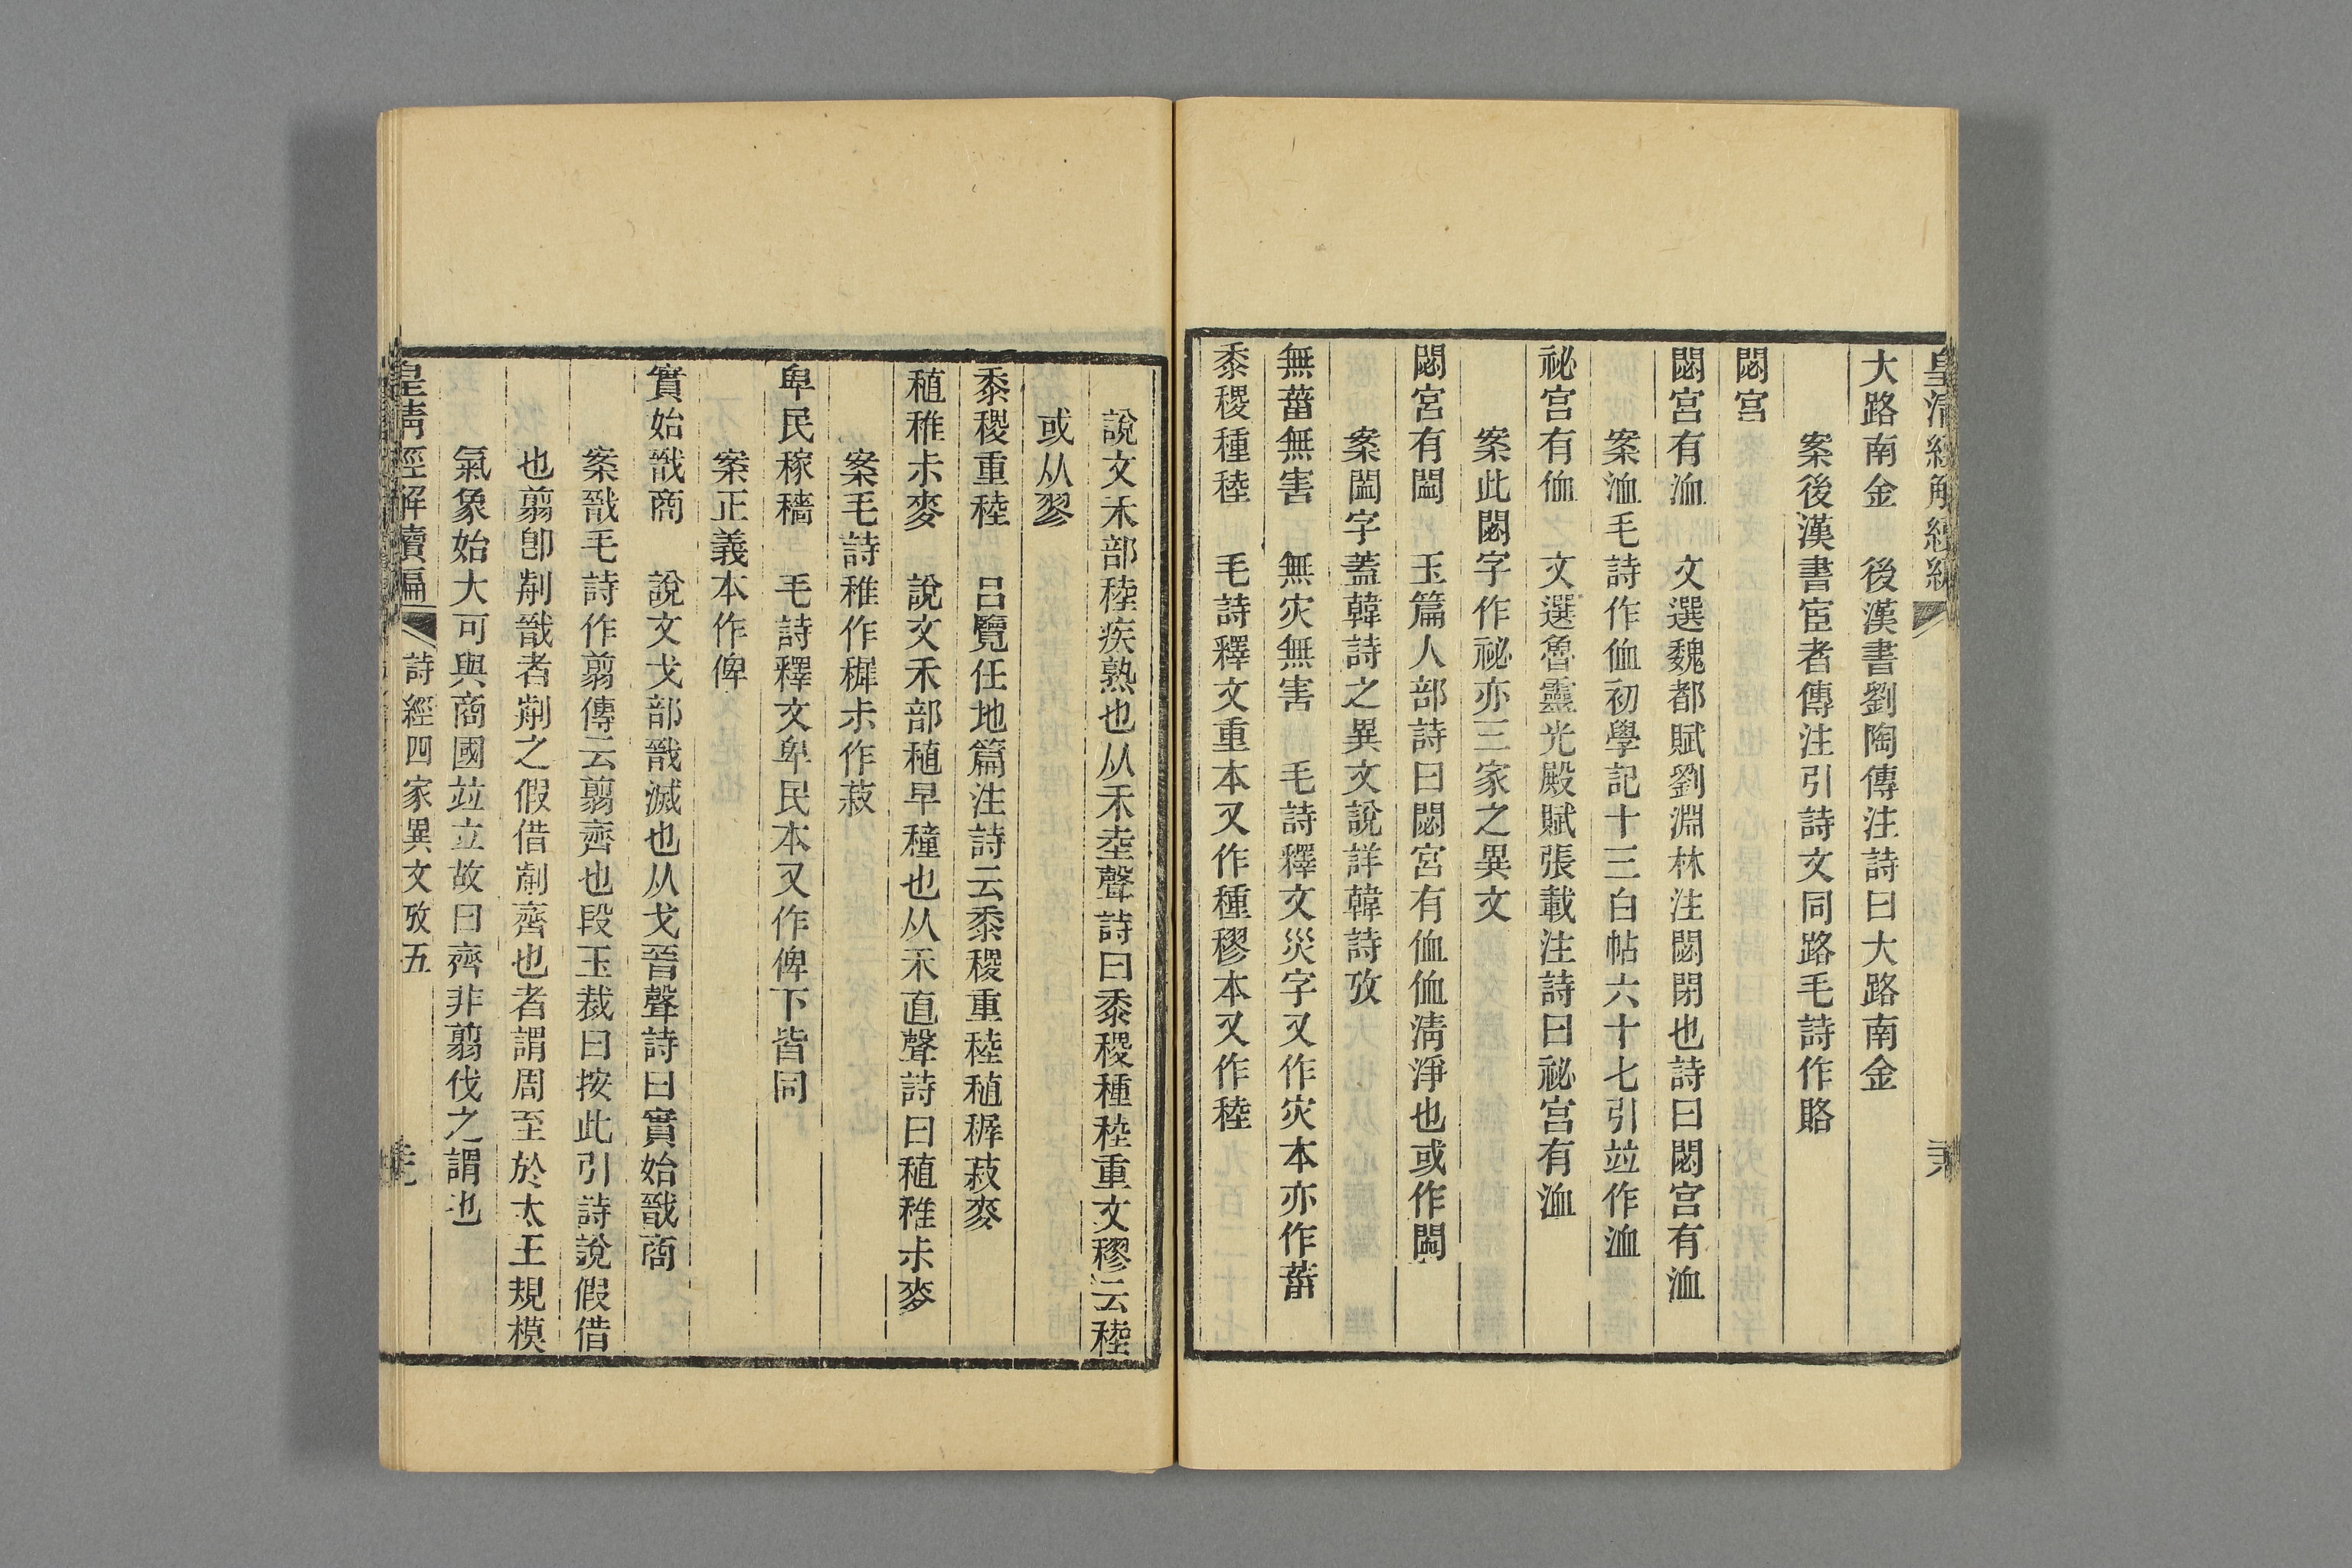 大路南金　後漢書劉陶傳注詩曰大路南金
案後漢書宦者傳注引詩文同路毛詩作賂
閟宮
閟宮有洫　文選魏都賦劉淵林注閟閉也詩曰閟宮有洫
案洫毛詩作侐初學記十三白帖六十七引竝作洫
祕宮有侐　文選魯靈光殿賦張載注詩曰祕宮有洫
案此閟字作祕亦三家之異文
閟宮有閫　玉篇人部詩曰閟宮有侐侐清淨也或作閫
案閫字蓋韓詩之異文說詳韓詩攷
無菑無害　無灾無害　毛詩釋文災字又作灾本亦作菑
黍稷種稑　毛詩釋文重本又作種穋本又作稑
說文禾部稑疾熟也从禾坴聲詩曰黍稷種稑重文穋云稑
或从翏
黍稷重稑　呂覽任地篇注詩云黍稷重稑稙穉菽麥
稙稚尗麥　說文禾部稙早穜也从禾直聲詩曰稙稚尗麥
案毛詩稚作穉尗作菽
卑民稼穡　毛詩釋文卑民本又作俾下皆同
案正義本作俾
實始戬商　說文戈部戬滅也从戈晉聲詩曰實始戬商
案戬毛詩作翦傳云翦齊也段玉裁曰按此引詩說假借
也翦卽劑戬者劑之假借劑齊也者謂周至於太王規模
氣象始大可與商國竝立故曰齊非翦伐之謂也
皇清經解續編　詩經四家異文攷五